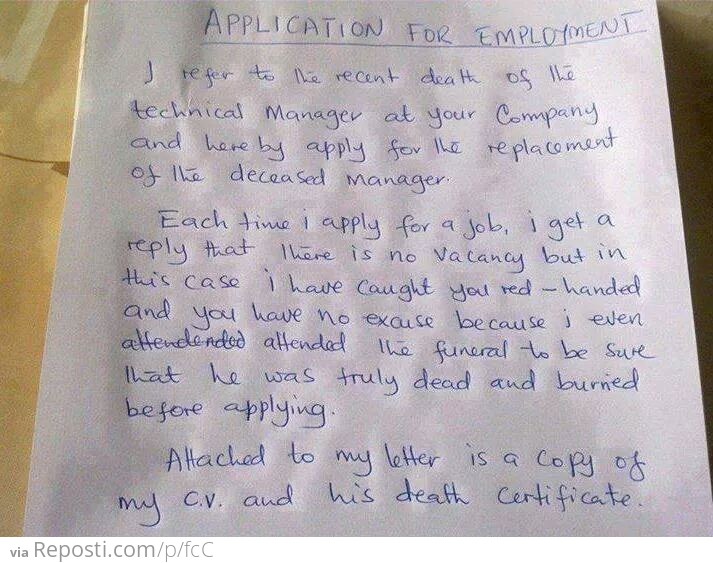 APPLICATION FOR EMPLOYMENT
I refer to the recent death of the
technical Manager at your Company
and here by apply for the replacement
of the deceased manager.
Each time i apply for a job, i get a
reply that there is no vacancy but in
this case i have caught you red-handed
and you have no excuse because i even
attendended attended the funeral to be sure
that he was truly dead and burried
before applying.
Attached to my letter is a copy of
my C.V. and his death certificate.
via Reposti.com/p/fcC